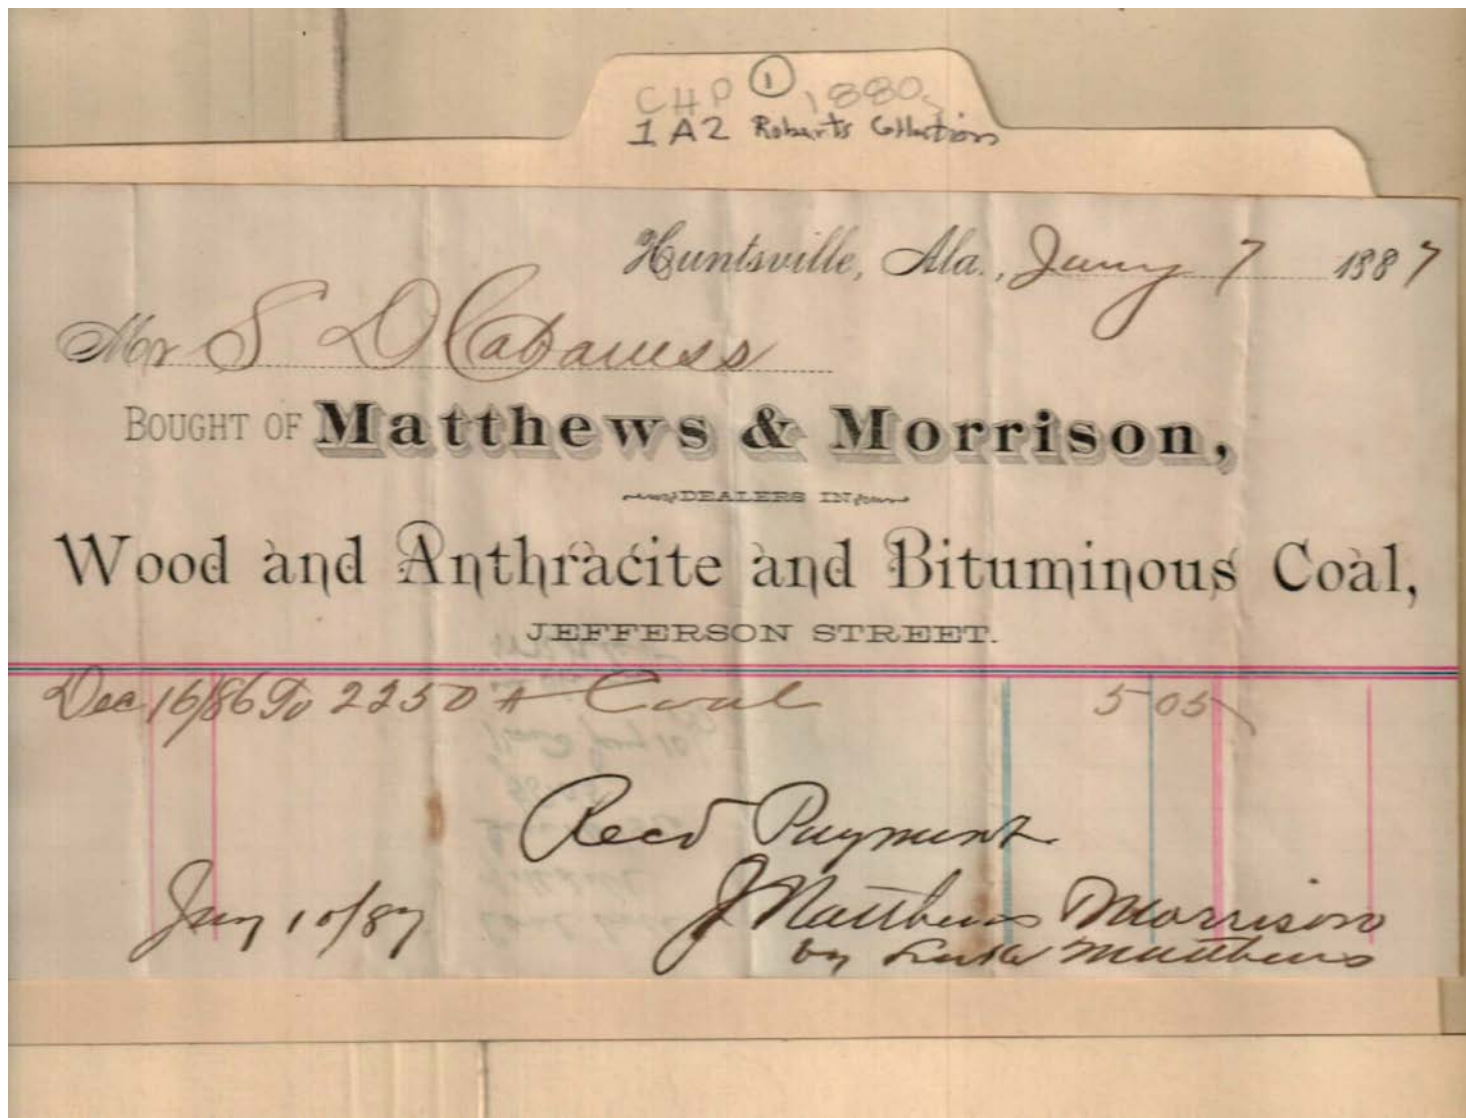 CHP ① 1880s
1A2 Roberts Collection
Huntsville, Ala., Jany 7 1887
Mr S D Cabaness
BOUGHT OF Matthews & Morrison,
DEALERS IN
Wood and Anthracite and Bituminous Coal,
JEFFERSON STREET.
Dec 16/86 To 2250 # Coal 5 05
Recd Payment
Jany 10/87 J Matthews Morrison
by Matthews